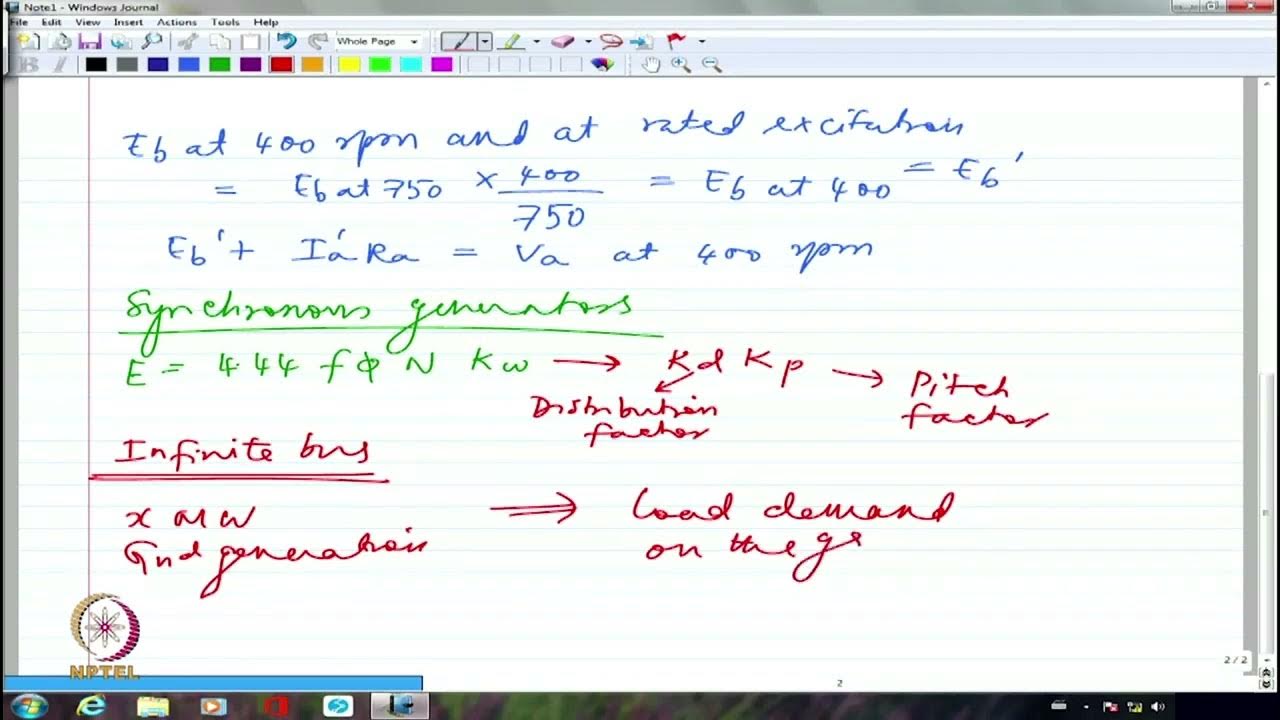 Note1 - Windows Journal
File Edit View Insert Actions Tools Help
Whole Page
Eb at 400 rpm and at rated excitation
= Eb at 750 × 400/750 = Eb at 400 = Eb'
Eb' + Ia'Ra = Va at 400 rpm
Synchronous generators
E = 4.44 f φ N Kw → Kd Kp → Pitch factor
Distribution factor
Infinite bus
x MW ⇒ Load demand
Grid generation on the ge
NPTEL
2 / 2
2